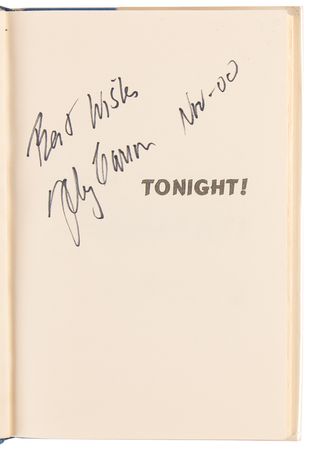 Best Wishes
Nov-00
Johnny Carson
TONIGHT!